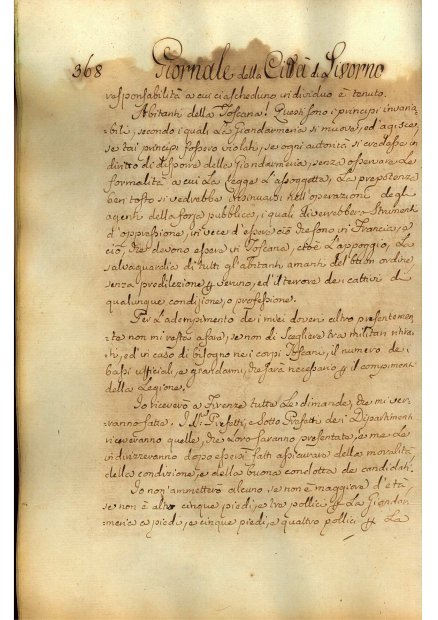 368 Giornale della Città di Livorno
responsabilità a cui ciascheduno individuo è tenuto.
Abitanti della Toscana! Questi sono i principi invaria-
bili, secondo i quali La Giandarmeria si muove, ed'agisce,
se tai principi fossero violati, se ogni autorità si credesse in
diritto di disporre della Giandarmeria, senza osservare le
formalità a cui La Legge L'assoggetta, La prepotenza
ben tosto si vedrebbe nell'operazioni degl'
agenti della forza pubblica, i quali diverrebbero Strumenti
d'oppressione, in vece d'essere ciò che sono in Francia, e
ciò, che devono essere in Toscana, cioè L'appoggio, La
salvaguardia di tutti gl'abitanti amanti del buon ordine,
senza predilezione veruno, ed'il terrore dei cattivi di
qualunque condizione, o professione.
Per L'adempimento dei miei doveri altro presentemen-
te non mi resta a fare, se non di Scegliere tra militari ritira-
ti, ed in caso di bisogno nei corpi Toscani, il numero dei
bassi ufficiali, e giandarmi, che sarà necessario il compimento
della Legione.
Io riceverò a Firenze tutte Le dimande, che mi ver-
ranno fatte. I Prefetti, e Sotto Prefetti dei Dipartimenti
riceveranno quelle, che Loro saranno presentate, e me Le
indirizzeranno dopo essersi fatti assicurare della moralità
della condizione, e della buona condotta dei candidati.
Io non ammetterò alcuno se non è maggiore d'età,
se non è alto cinque piedi, e tre pollici La Giandar-
meria a piedi, e cinque piedi, e quattro pollici La